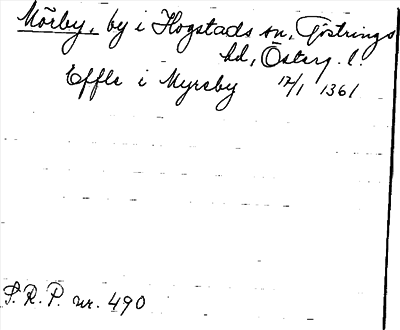 Mörby, by i Hogstads sn, Göstrings
hd, Österg. l.
Effle i Myreby 17/1 1361
S.R.P. nr. 490